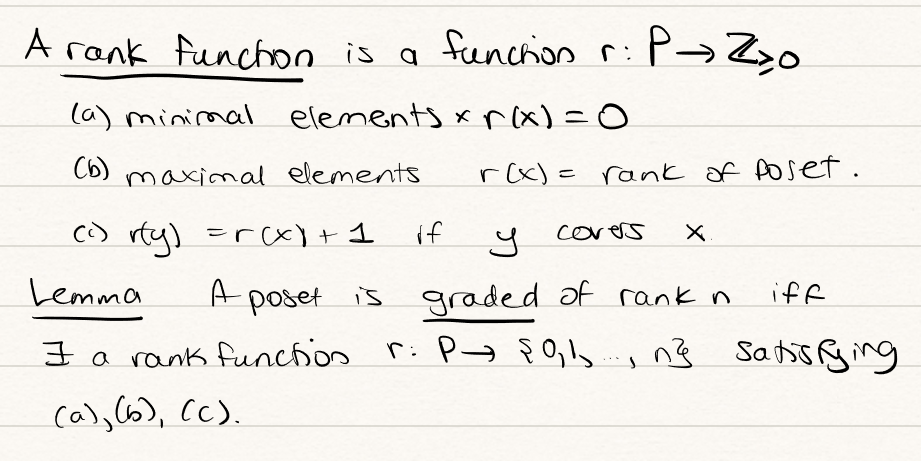 A rank function is a function r: P → ℤ≥0
(a) minimal elements x r(x) = 0
(b) maximal elements r(x) = rank of poset.
(c) r(y) = r(x) + 1 if y covers x.
Lemma A poset is graded of rank n iff
∃ a rank function r: P → {0,1, ..., n} satisfying
(a), (b), (c).